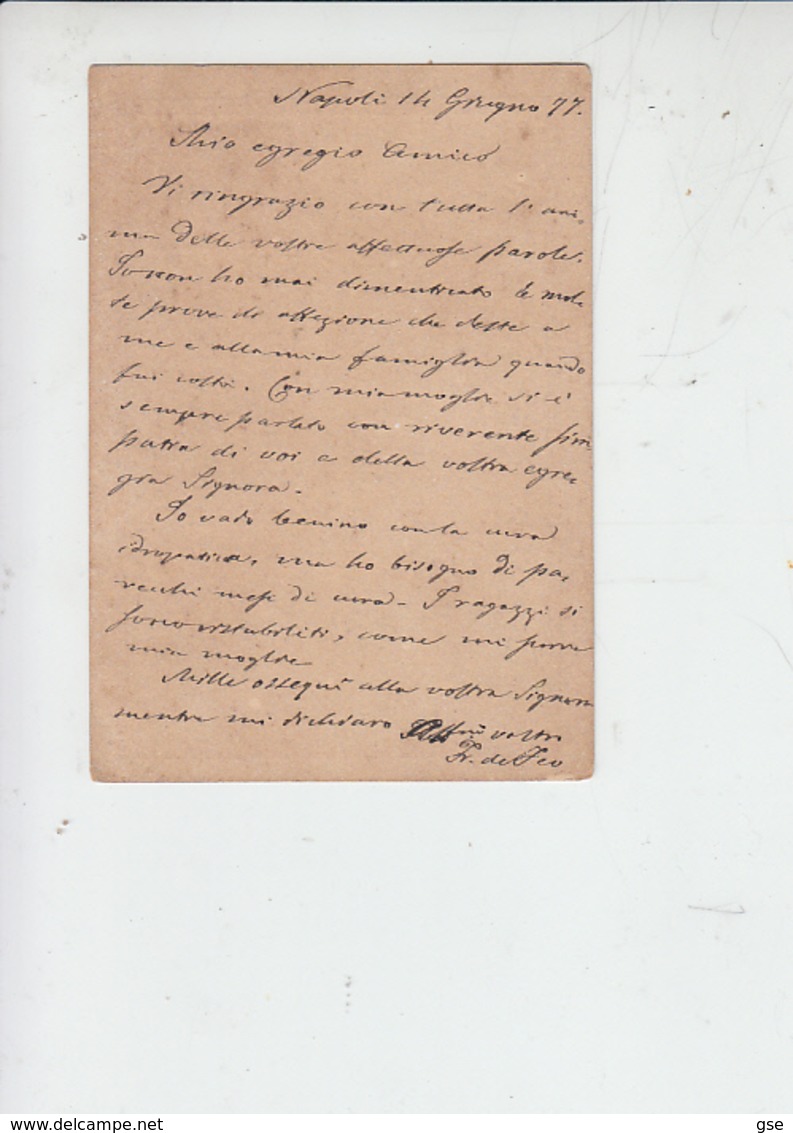 Napoli 14 Giugno 77.
Mio egregio Amico
Vi ringrazio con tutta l'ani-
ma delle vostre affettuose parole.
Io non ho mai dimenticato le mol-
te prove di affezione che deste a
me e alla mia famiglia quando
fui costì. Con mia moglie si è
sempre parlato con riverente sim-
patia di voi e della vostra egre-
gia Signora.
Io vado benino con la cura
idropatica, ma ho bisogno di pa-
recchi mesi di cura. I ragazzi si
sono ristabiliti, come mi scrive
mia moglie
Mille ossequi alla vostra Signora
mentre mi dichiaro Aff.mo vostro
Fr. de Feo
www.delcampe.net
gse